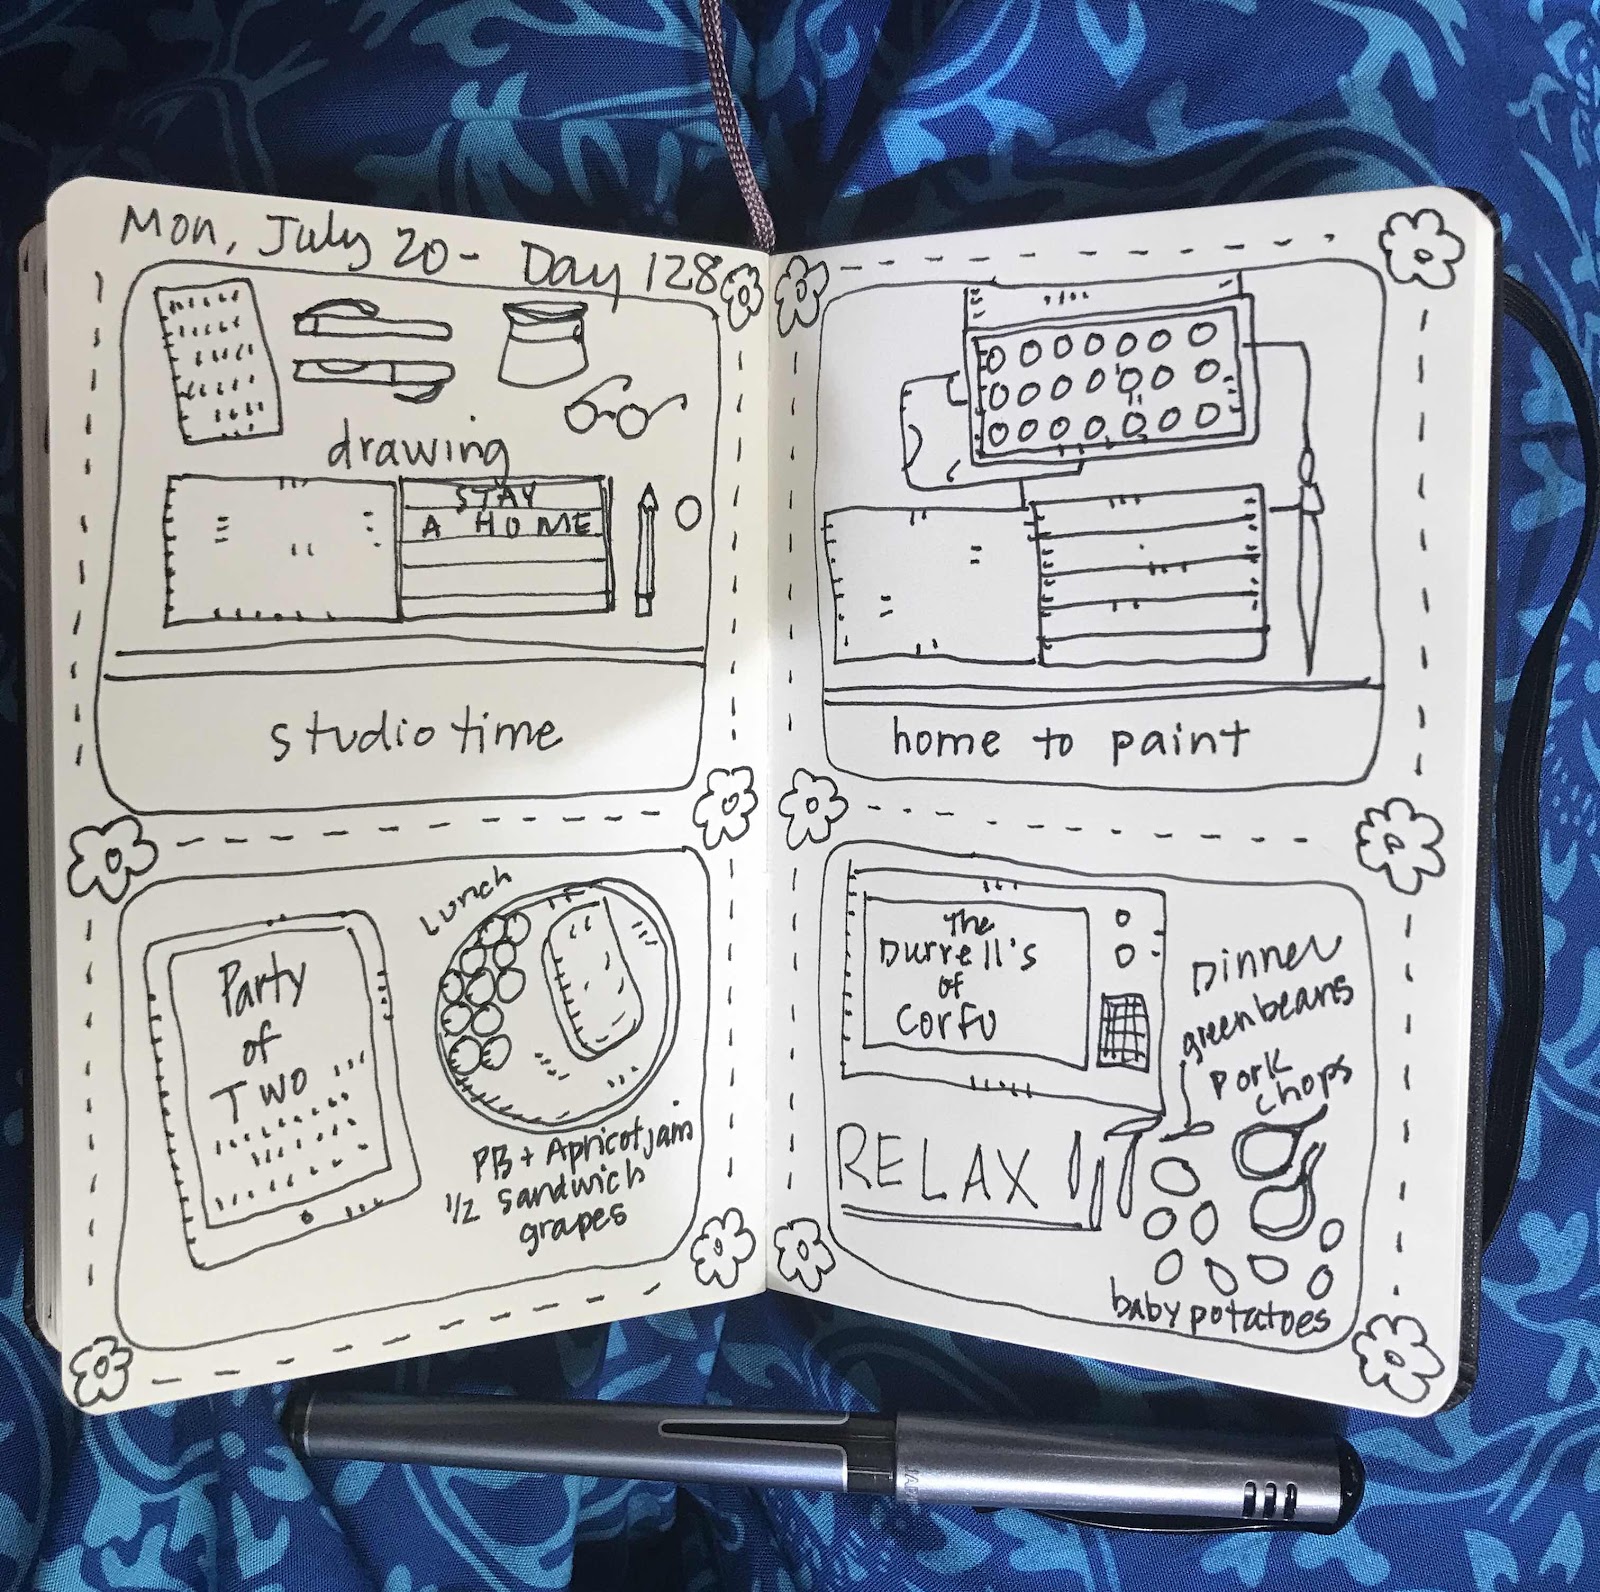 Mon, July 20 - Day 128
drawing
STAY
A HOME
studio time
home to paint
Party
of
Two
Lunch
PB + Apricot jam
1/2 sandwich
grapes
The
Durrell's
of
Corfu
RELAX
Dinner
green beans
pork
chops
baby potatoes